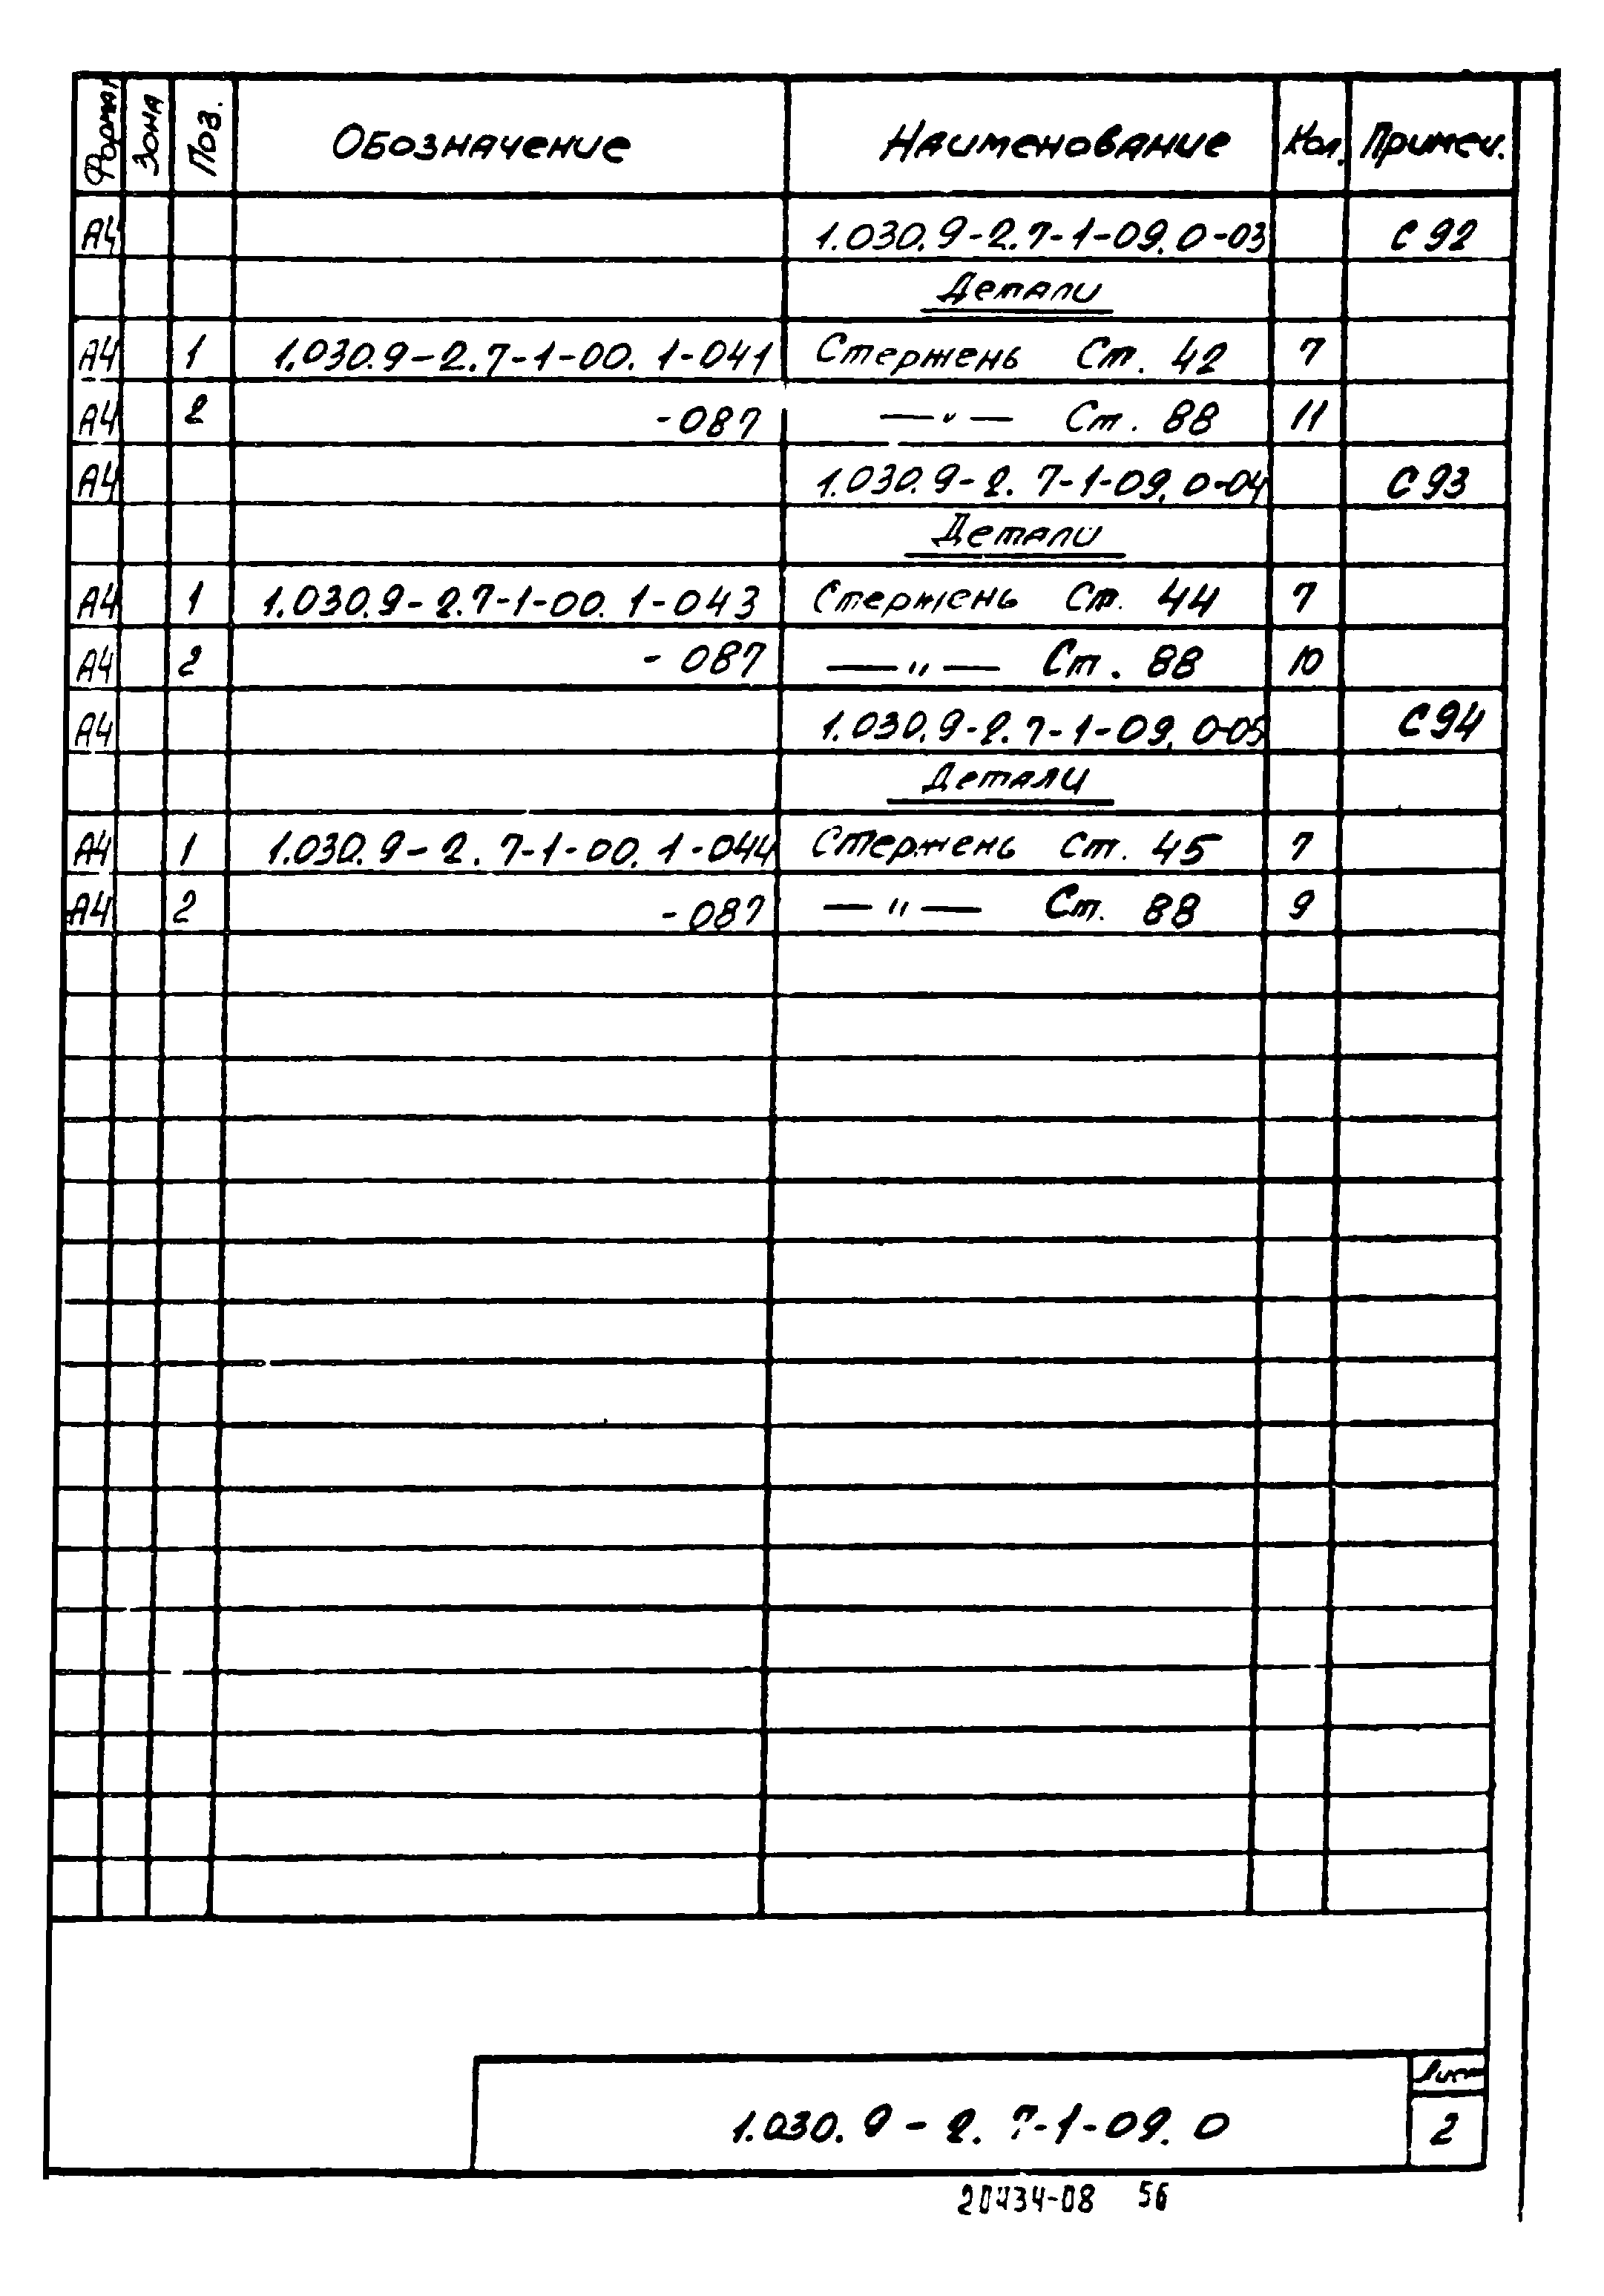 Формат Зона Поз. Обозначение Наименование Кол. Примеч.
А4 1.030.9-2.7-1-09.0-03 С92
Детали
А4 1 1.030.9-2.7-1-00.1-041 Стержень Ст. 42 7
А4 2 -087 —"— Ст. 88 11
А4 1.030.9-2.7-1-09.0-04 С93
Детали
А4 1 1.030.9-2.7-1-00.1-043 Стержень Ст. 44 7
А4 2 -087 —"— Ст. 88 10
А4 1.030.9-2.7-1-09.0-05 С94
Детали
А4 1 1.030.9-2.7-1-00.1-044 Стержень Ст. 45 7
А4 2 -087 —"— Ст. 88 9
Лист
1.030.9-2.7-1-09.0 2
20434-08 56